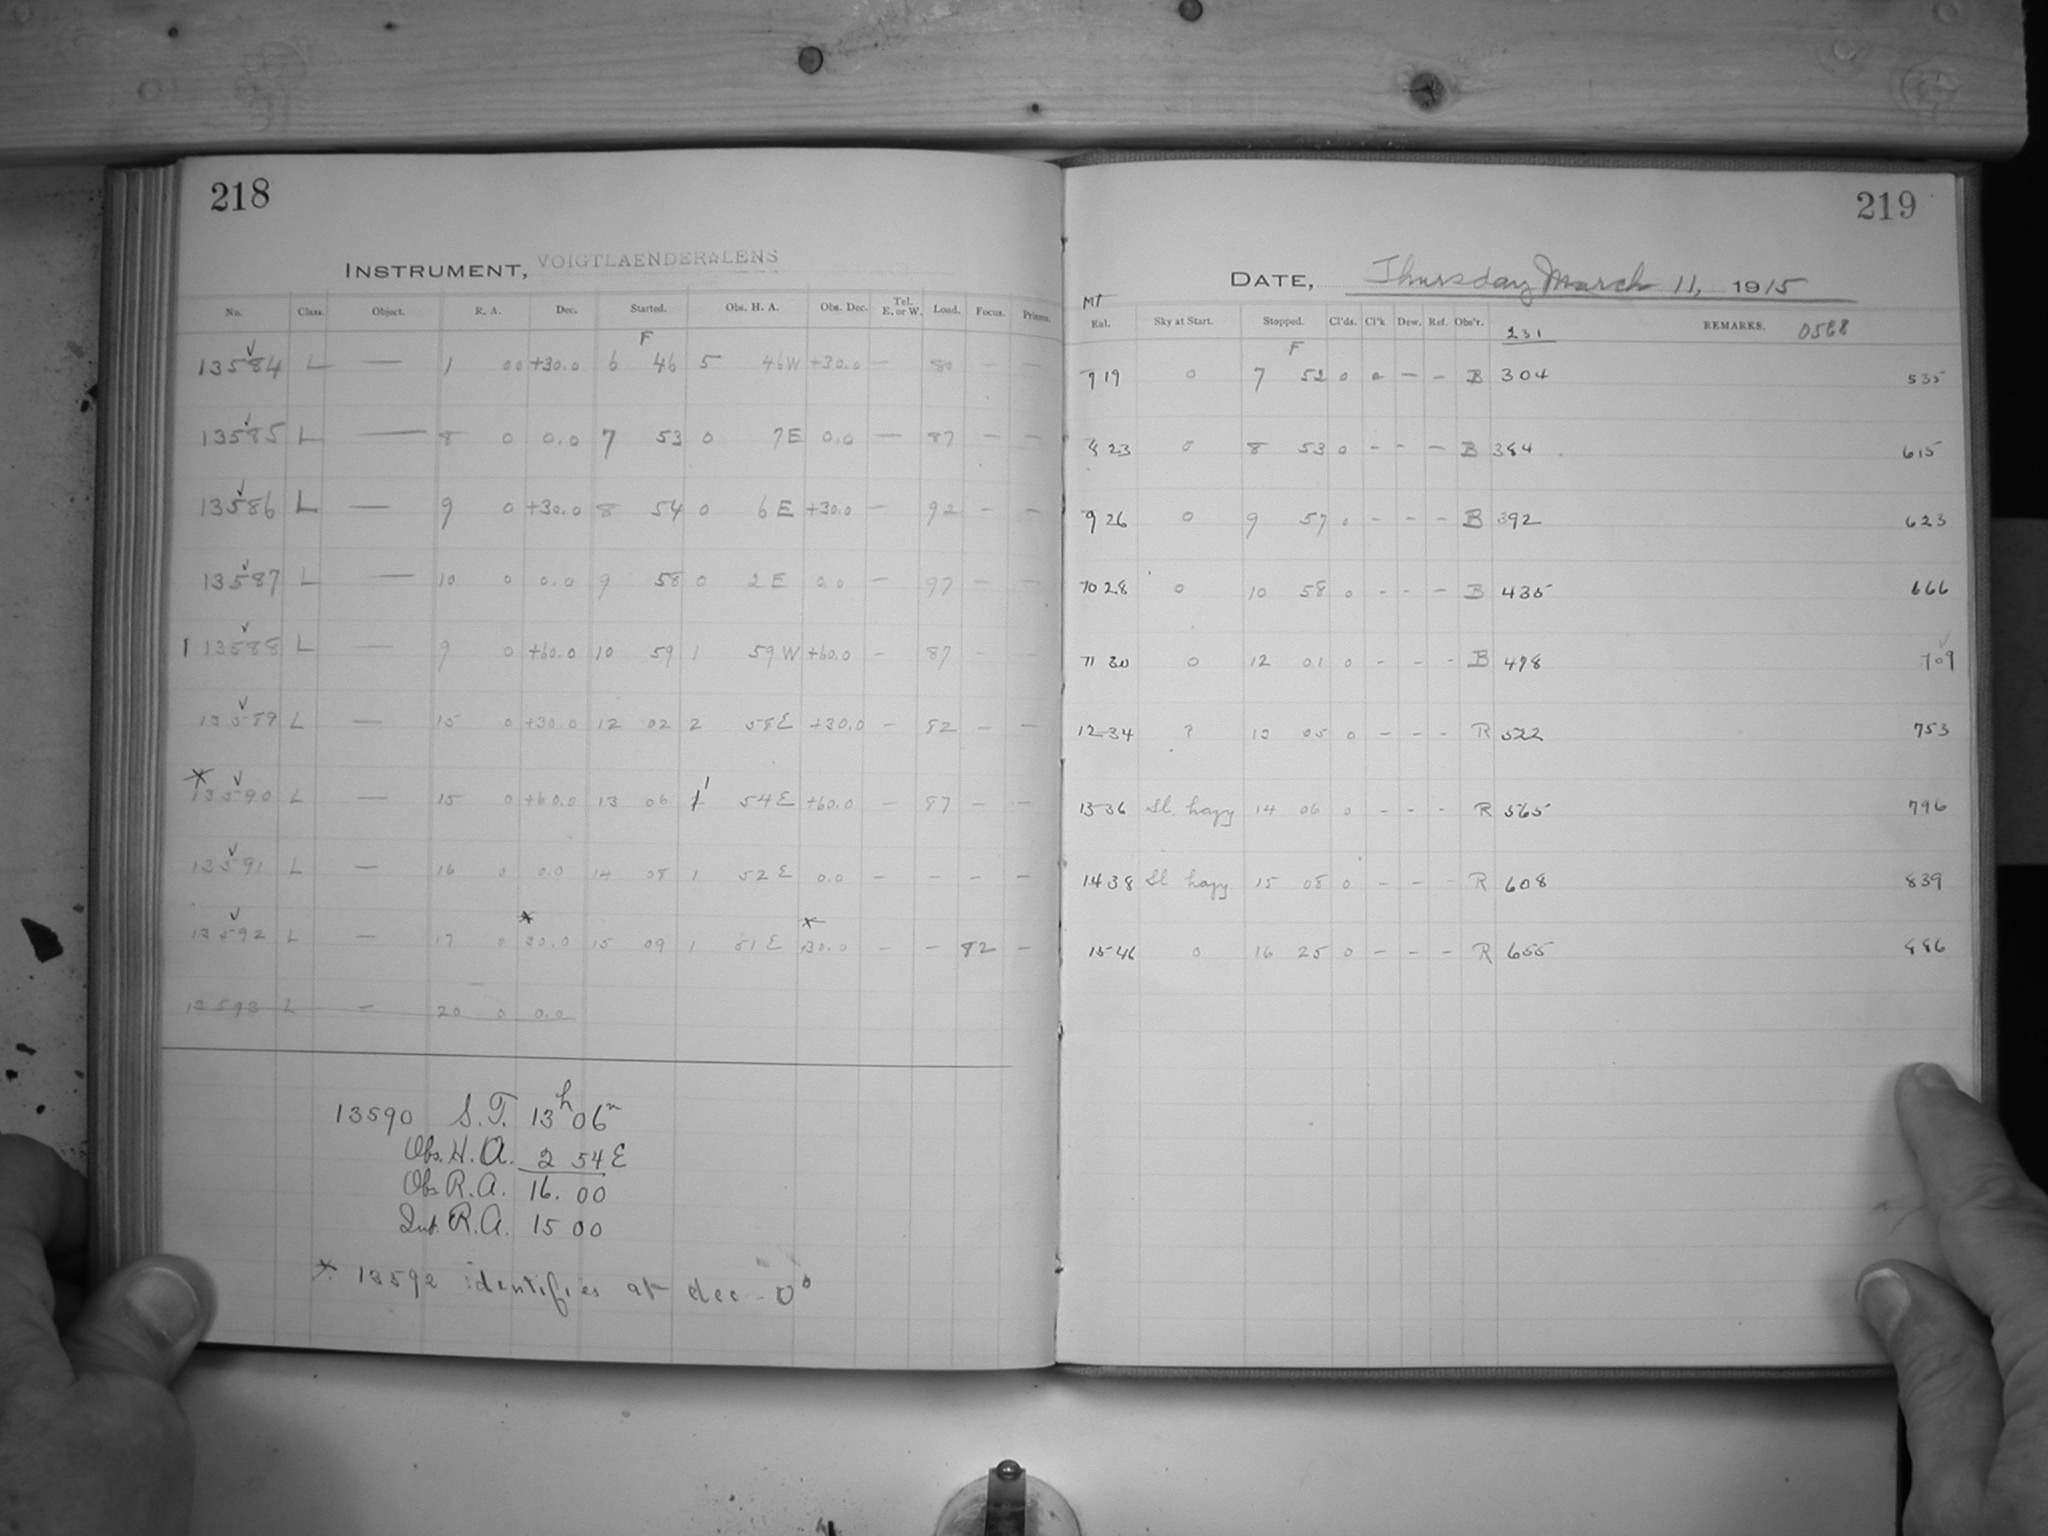 218
INSTRUMENT, VOIGTLAENDER LENS
No. Class. Object. R. A. Dec. Started. Obs. H. A. Obs. Dec. Tel. E. or W. Load. Focus. Prisms.
F
13584 L — 1 00 +30.0 6 46 5 46W +30.0 — 80 — —
13585 L — 8 0 0.0 7 53 0 7E 0.0 — 87 — —
13586 L — 9 0 +30.0 8 54 0 6E +30.0 — 92 — —
13587 L — 10 0 0.0 9 58 0 2E 0.0 — 97 — —
13588 L — 9 0 +60.0 10 59 1 59W +60.0 — 87 — —
13589 L — 15 0 +30.0 12 02 2 58E +30.0 — 82 — —
* 13590 L — 15 0 +60.0 13 06 1 54E +60.0 — 87 — —
13591 L — 16 0 0.0 14 08 1 52E 0.0 — — — —
* *
13592 L — 17 0 30.0 15 09 1 51E +30.0 — — 82 —
13593 L — 20 0 0.0
13590 S.T. 13h 06m
Obs. H.A. 2 54 E
Obs R.A. 16. 00
Int. R.A. 15 00
* 13592 identifies at dec - 0°
219
DATE, Thursday March 11, 1915
MT
Eul. Sky at Start. Stopped. Cl'ds. Cl'k Dew. Ref. Obs'r. 231 REMARKS. 0568
F
7 19 0 7 52 0 0 — — B 304 535
8 23 0 8 53 0 - - — B 384 615
9 26 0 9 57 0 - - - B 392 623
10 28 0 10 58 0 - - — B 435 666
11 30 0 12 01 0 - - - B 478 709
12 34 ? 13 05 0 - - - R 522 753
13 36 Sl. hazy 14 06 0 - - - R 565 796
14 38 Sl hazy 15 08 0 - - - R 608 839
15 46 0 16 25 0 - - - R 655 886